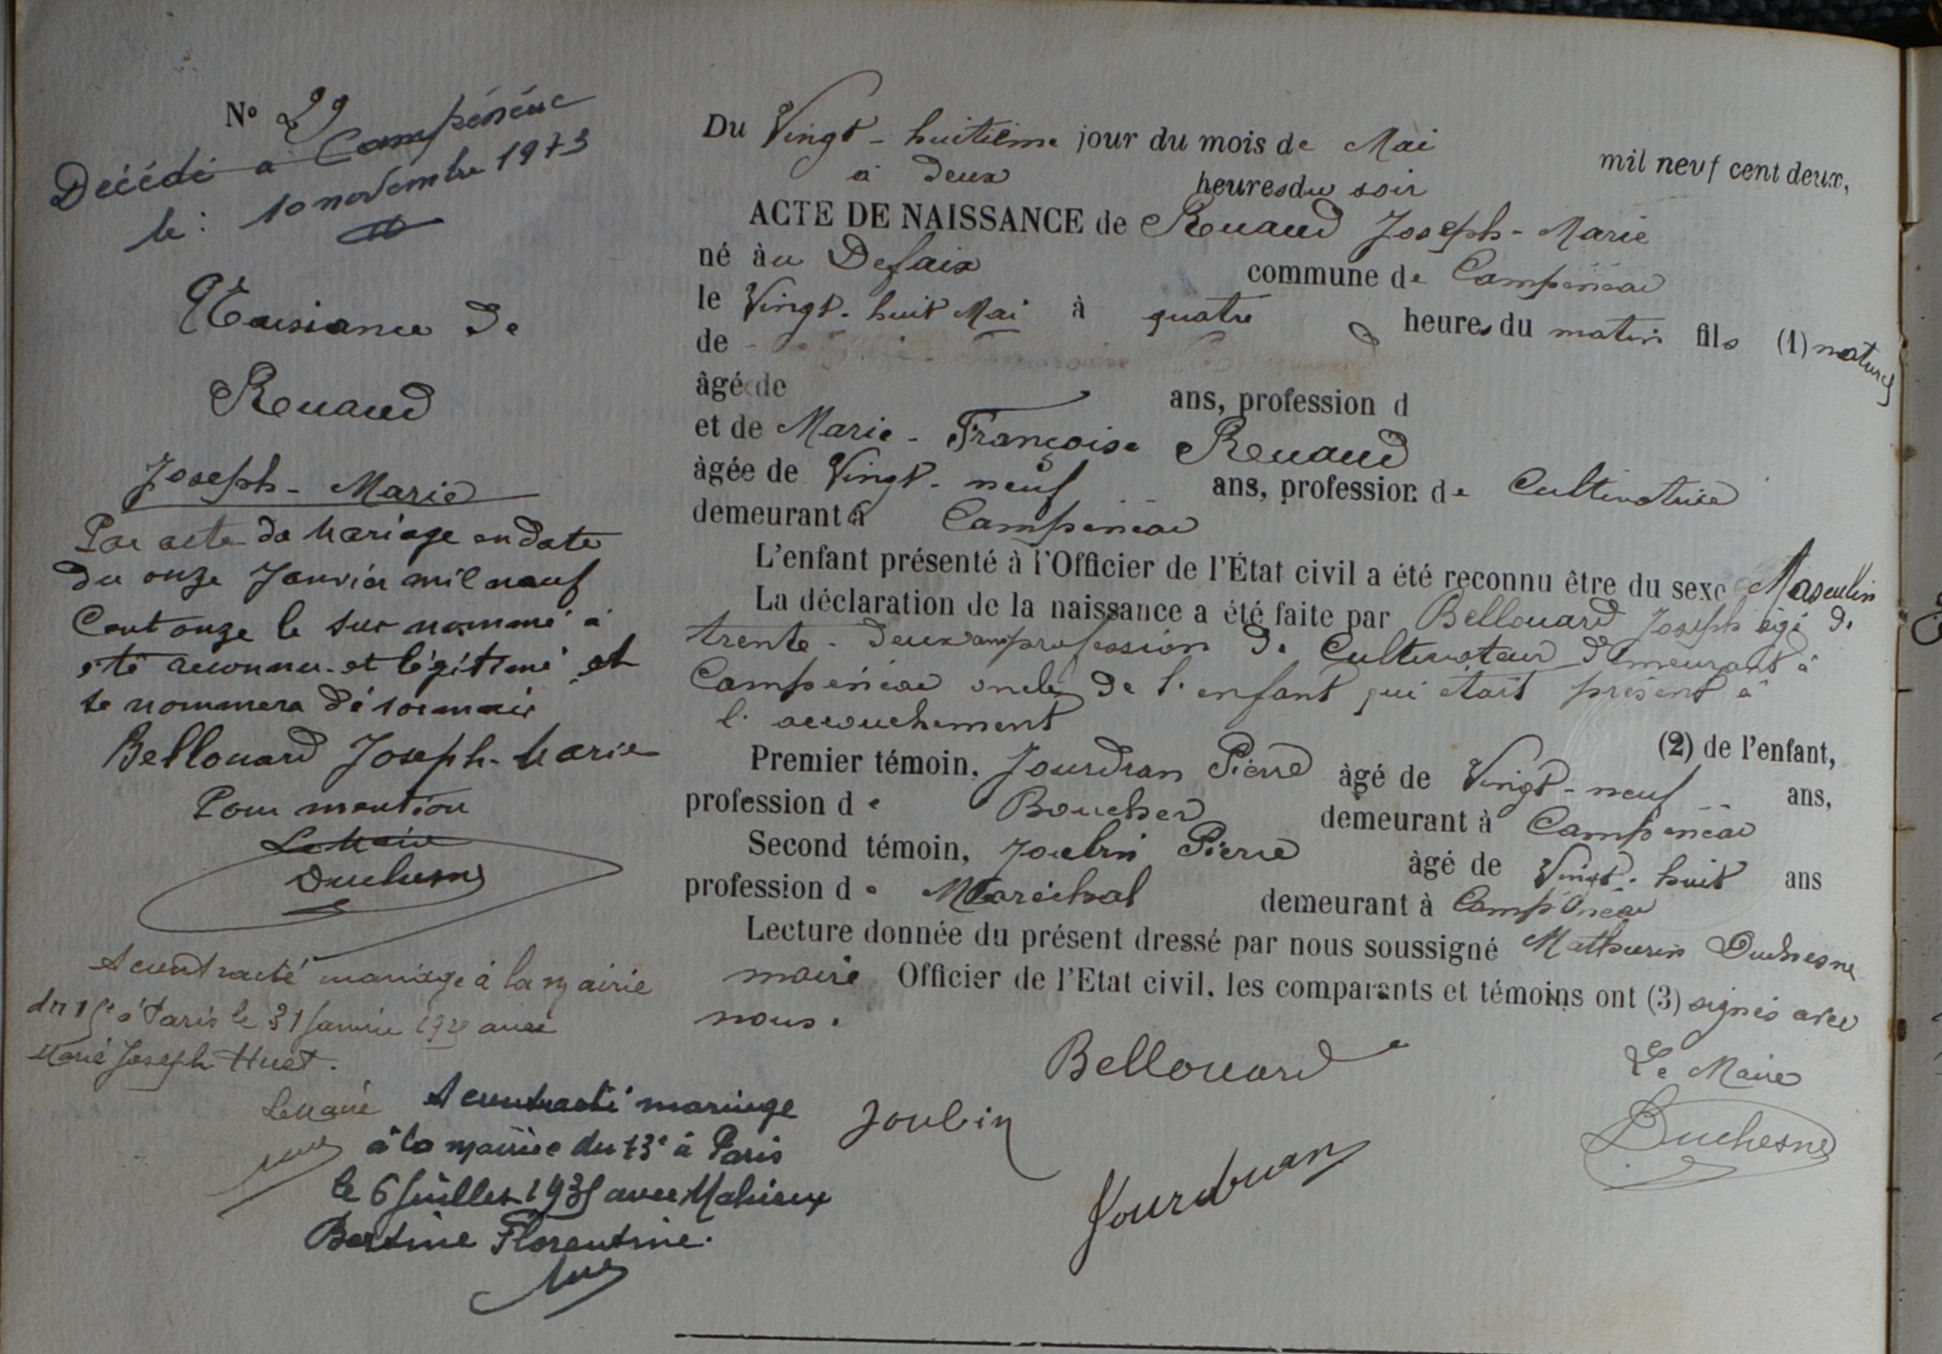 N° 29
Décédé à Campénéac
le : 10 novembre 1973
Naissance de
Renaud
Joseph-Marie
Par acte de Mariage en date
du onze Janvier mil neuf
Cent onze le sus nommé a
été reconnu et légitimé et
se nommera désormais
Bellouard Joseph-Marie
Pour mention
Le Maire
Duchesne
A contracté mariage à la mairie
à Paris le 31 Janvier avec
Marie Joseph Huet.
Le Maire
A contracté mariage
à la mairie du 13e à Paris
le 6 Juillet 1935 avec Mahieux
Bertine Florentine.
Du Vingt-huitième jour du mois de Mai mil neuf cent deux,
à deux heures du soir
ACTE DE NAISSANCE de Renaud Joseph-Marie
né à u Defaix commune de Campénéac
le Vingt-huit Mai à quatre heures du matin fils (1) naturel
de
âgé de ans, profession d
et de Marie-Françoise Renaud
âgée de Vingt-neuf ans, profession de Cultivatrice
demeurant à Campénéac
L'enfant présenté à l'Officier de l'État civil a été reconnu être du sexe Masculin
La déclaration de la naissance a été faite par Bellouard Joseph âgé de
trente-deux ans profession de Cultivateur demeurant à
Campénéac oncle de l'enfant qui était présent à
l'accouchement
(2) de l'enfant,
Premier témoin, Jourdran Pierre âgé de Vingt-neuf ans,
profession de Boucher demeurant à Campénéac
Second témoin, Joubin Pierre âgé de Vingt-huit ans
profession de Maréchal demeurant à Campénéac
Lecture donnée du présent dressé par nous soussigné Mathurin Duchesne
maire Officier de l'Etat civil, les comparants et témoins ont (3) signés avec
nous.
Bellouard
Le Maire
Joubin
Jourdran
Duchesne